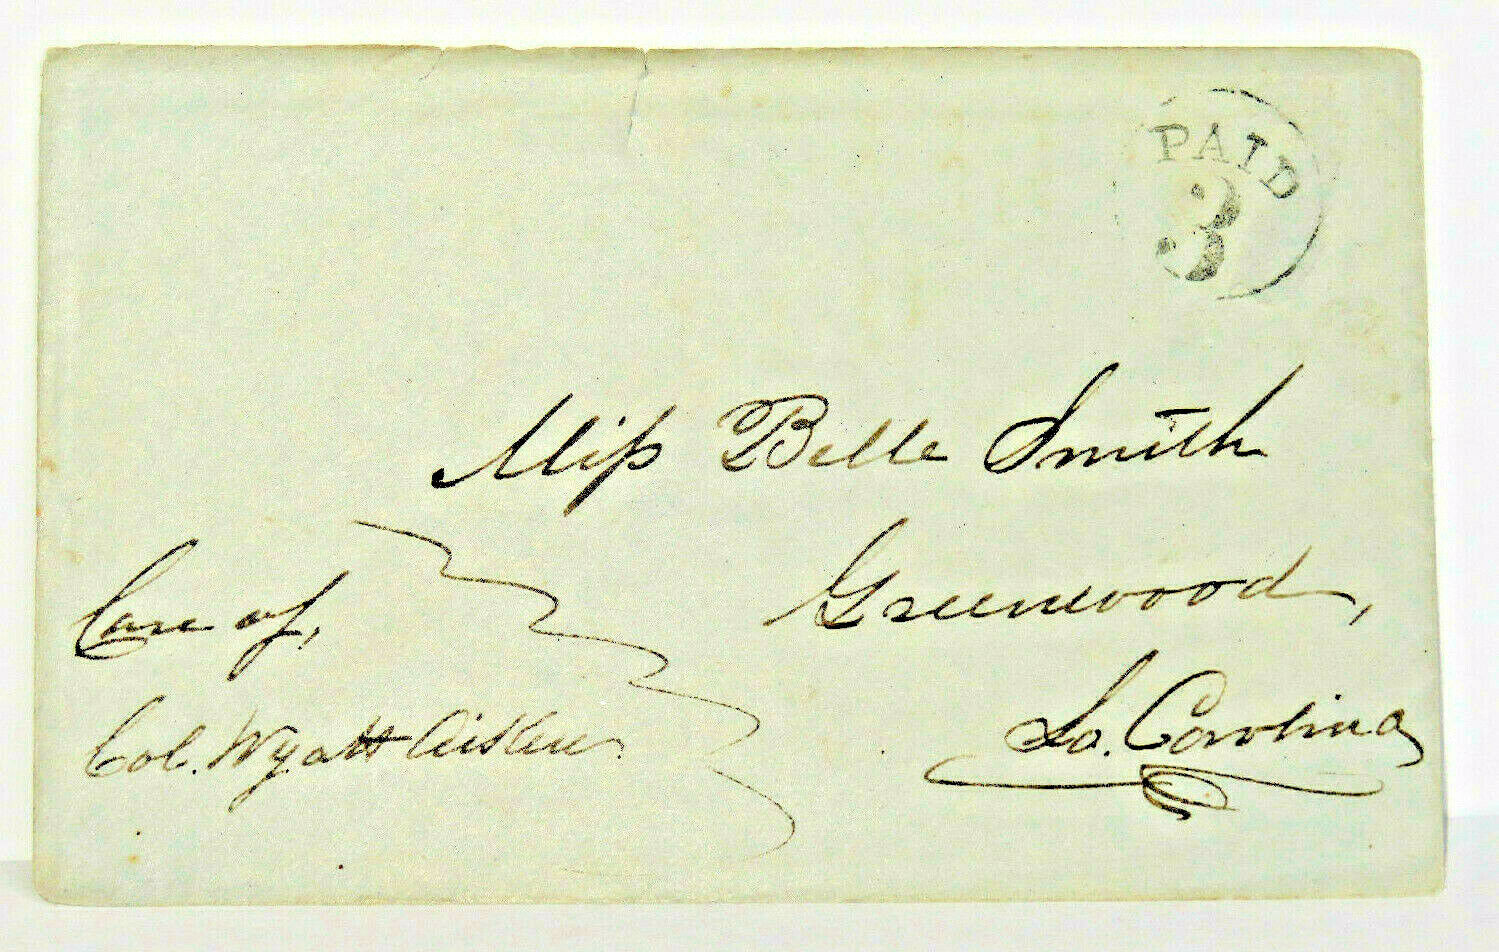 PAID
3
Miss Belle Smith
Greenwood,
So. Carolina
Care of,
Col. Wyatt Aiken